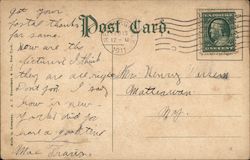 Post Card.
Got your
postal thanks
for same
how are the
pictures I think
they are all right
Dont you I say
how is new
Yorks did you
have a good time
Mae
Mrs. Henry
Matteawan
N.Y.
1911
12-M